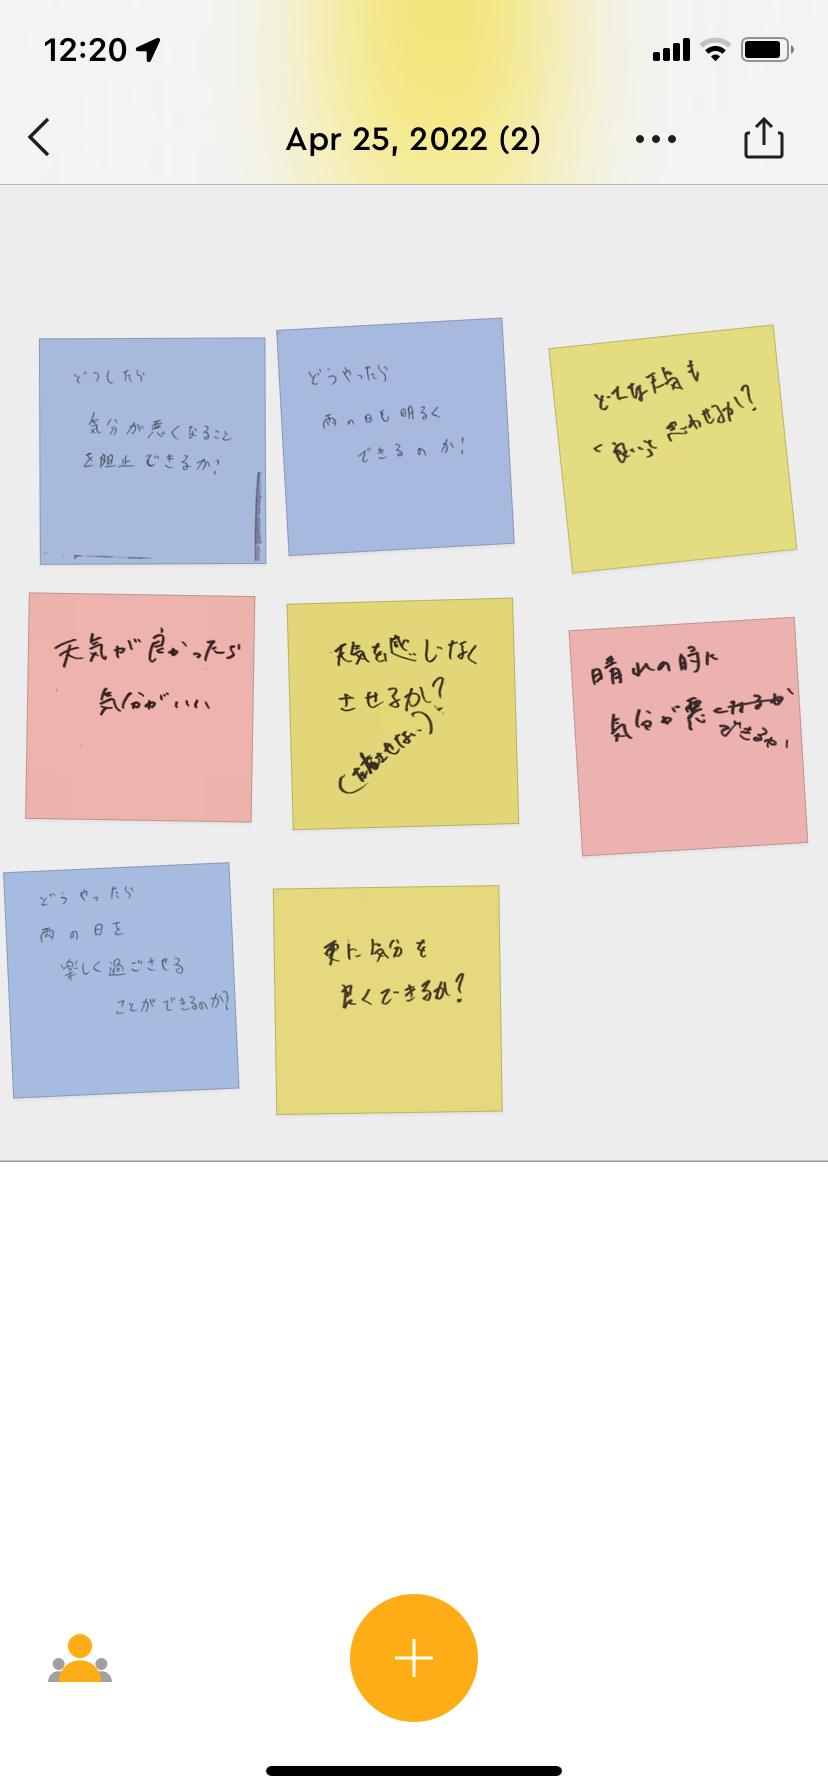 12:20
Apr 25, 2022 (2)
どうしたら
気分が悪くなること
を阻止できるか?
どうやったら
雨の日も明るく
できるのか!
どんな天気も
く良いと思わせるか!?
天気が良かったら
気分がいい
天気を感じなく
させるか?
(左右させない)
晴れの時に
気分が悪くなるか
できるか,
どうやったら
雨の日を
楽しく過ごさせる
ことができるのか?
更に気分を
良くできるか?